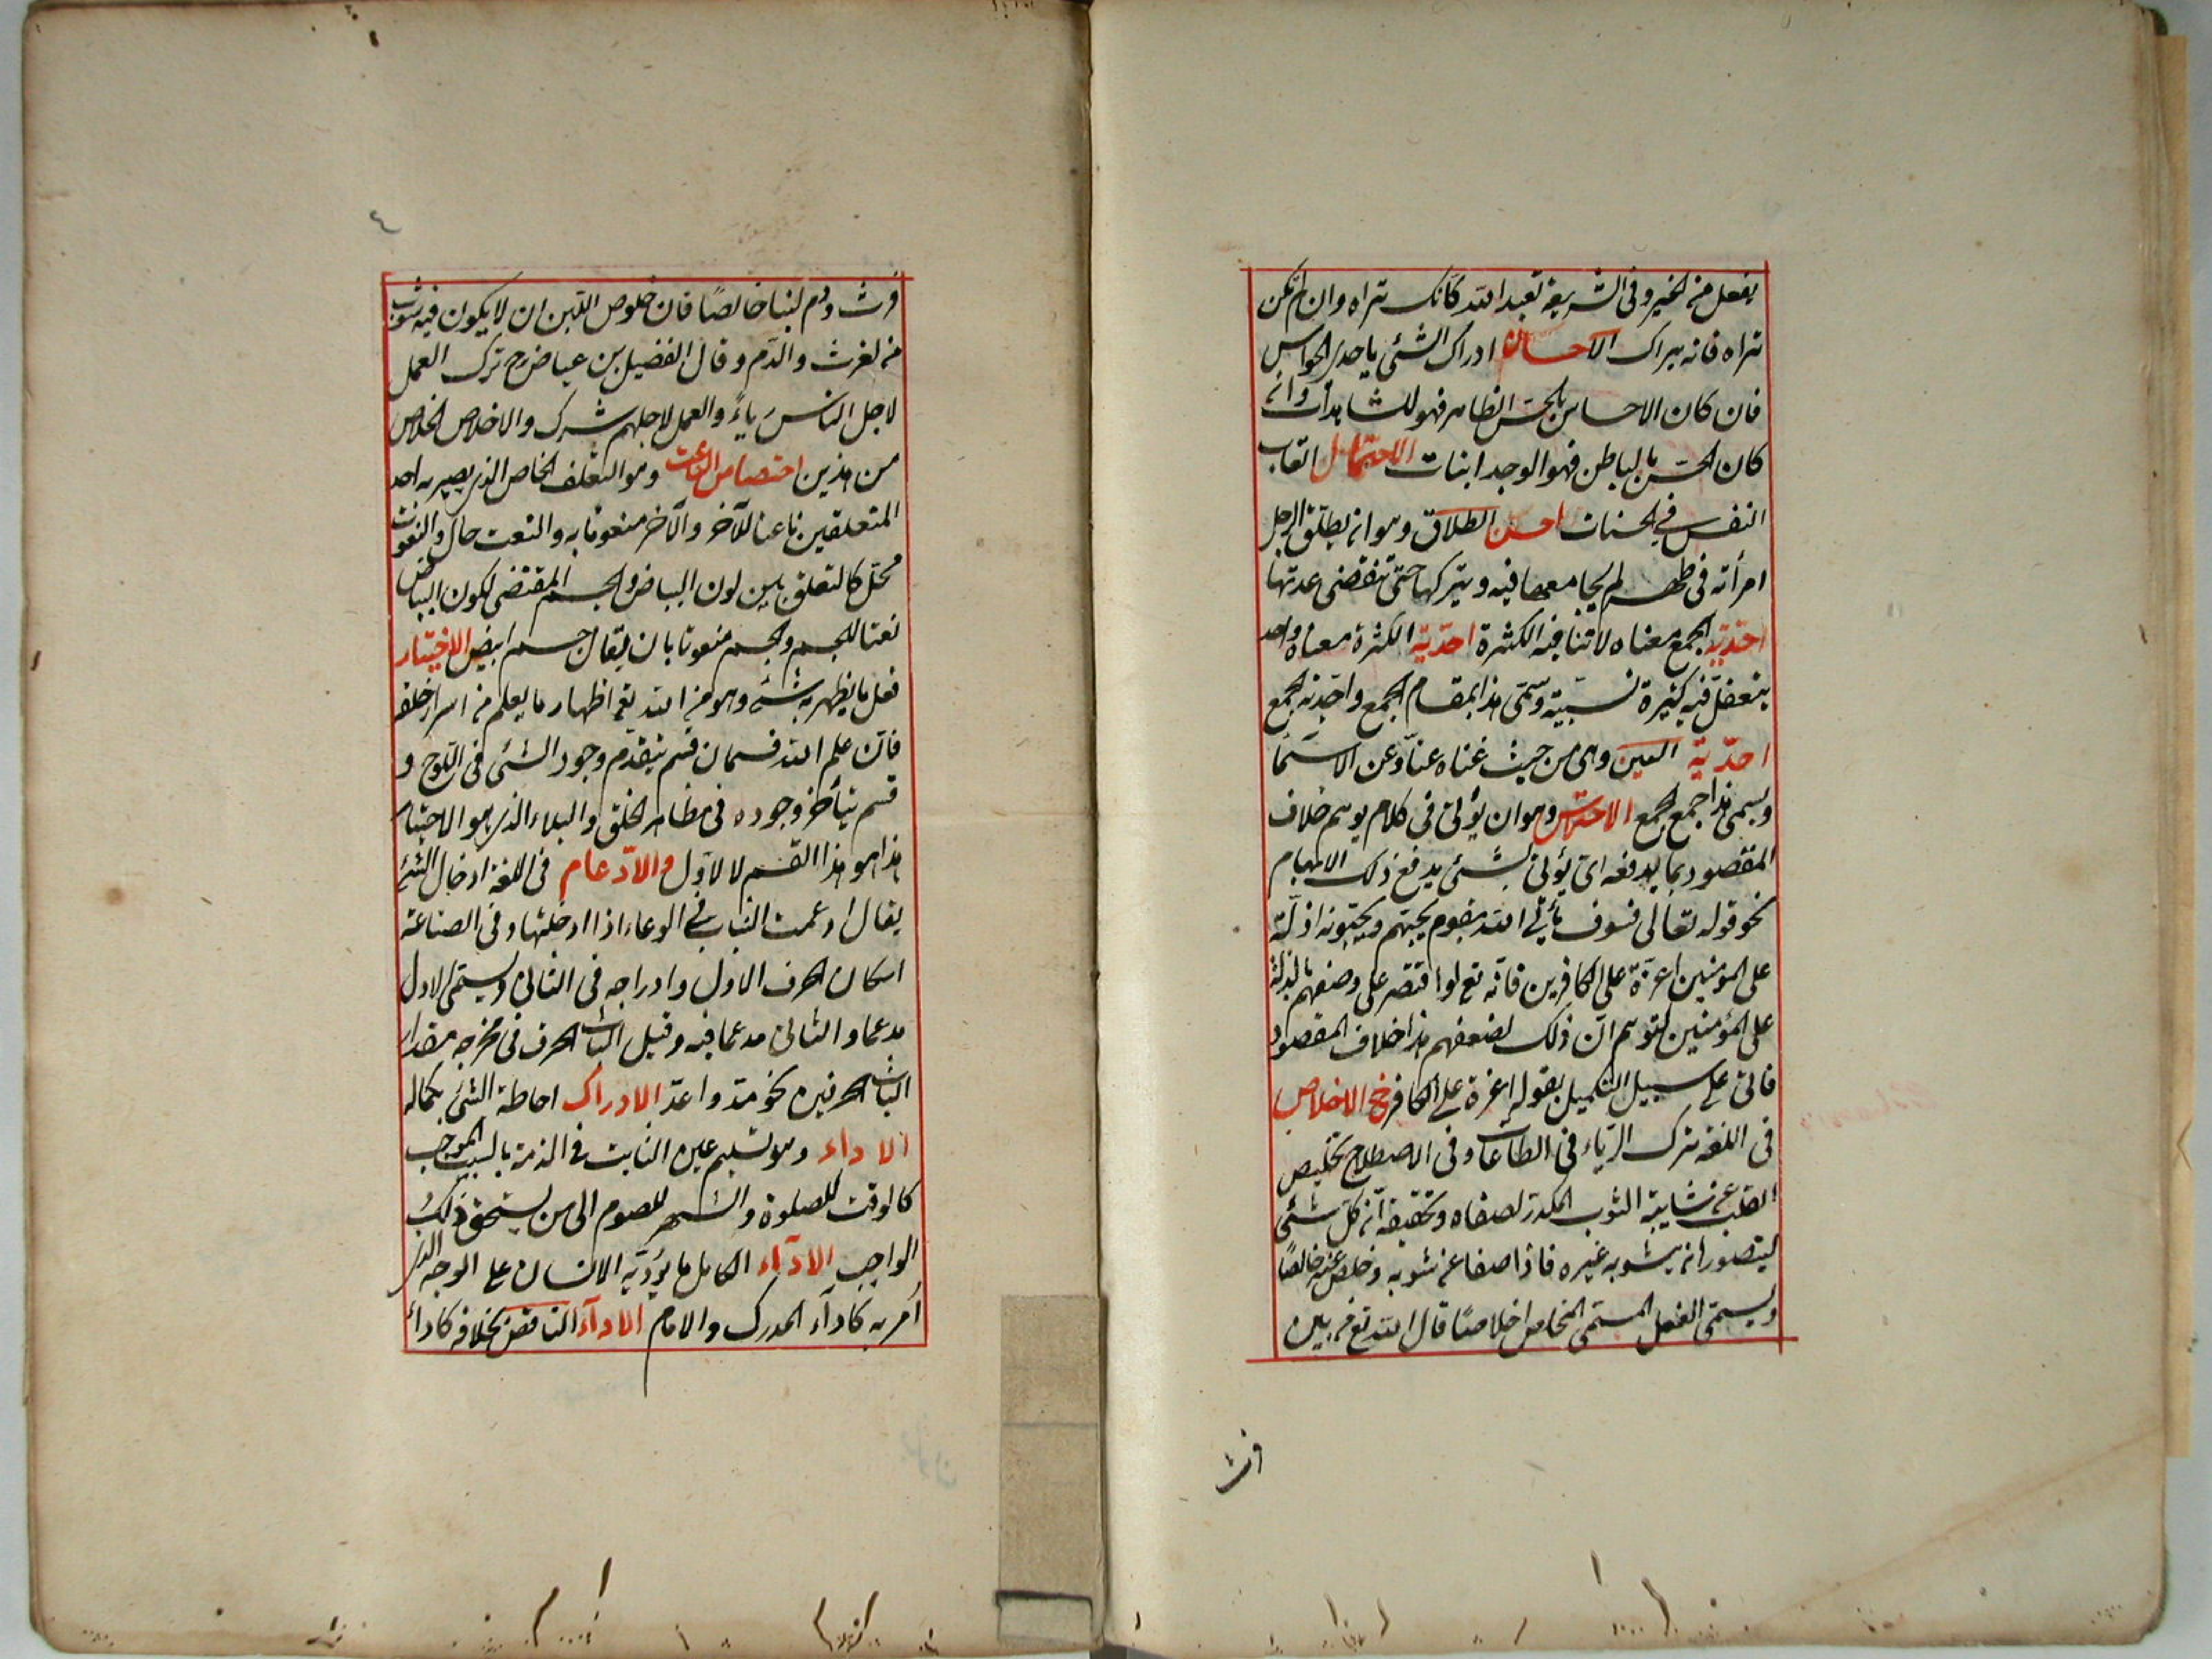 يفعل من الخير وفى الشريعة تعبد الله كانك تراه وان لم تكن
تراه فانه يراك الاحساس ادراك الشئ باحدى الحواس
فان كان الاحساس بالحس الظاهر فهو للمشاهدات وان
كان الحس بالباطن فهو الوجدانيات الاحتمال اتعاب
النفس فى الحسنات احسن الطلاق وهو ان يطلق الرجل
امرأته فى طهر لم يجامعها فيه ويتركها حتى تنقضى عدتها
احدية الجمع معناه لا تنافيه الكثرة احدية الكثرة معناه واحد
يتعقل فيه كثيرة نسبية وسمى هذا بمقام الجمع واحدية الجمع
احدية العين وهى من حيث غناه عنا وعن الاسما
ويسمى هذا جمع الجمع الاحتراس وهو ان يؤتى فى كلام يوهم خلاف
المقصود بما يدفعه اى يؤتى بشئ يدفع ذلك الايهام
نحو قوله تعالى فسوف يأتى الله بقوم يحبهم ويحبونه اذلة
على المؤمنين اعزة على الكافرين فانه تع لو اقتصر على وصفهم بالذلة
على المؤمنين لتوهم ان ذلك لضعفهم هذا خلاف المقصود
فاتى على سبيل التكميل بقوله اعزة على الكافرين الاخلاص
فى اللغة ترك الرياء فى الطاعات وفى الاصطلاح تخليص
القلب عن شايبة الشوب المكدر لصفاه وتحقيقه ان كل شئ
يتصور انه يشوبه غيره فاذا صفا عن شوبه وخلص عنه خالصًا
ويسمى الفعل المسمى المخلص اخلاصًا قال الله تع من بين
فرث
٤
فرث ودم لبنا خالصًا فان خلوص اللبن ان لا يكون فيه شوب
من الفرث والدم وقال الفضيل بن عياض رح ترك العمل
لاجل الناس رياءً والعمل لاجلهم شرك والاخلاص الخلاص
من هذين اختصاص الناعت وهو التعلق الخاص الذى يصير به احد
المتعلقين ناعتا للآخر والآخر منعوتا به والنعت حال والمنعوت
محل كالتعلق بين لون البياض والجسم المقتضى لكون البياض
نعتا للجسم والجسم منعوتا بان يقال جسم ابيض الاختبار
فعل ما يظهر به شئ وهو من الله تع اظهار ما يعلم من اسرار خلقه
فان علم الله قسمان قسم يتقدم وجود الشئ فى اللوح و
قسم يتأخر وجوده فى مظاهر الخلق والبلاء الذى هو الاختبار
هذا هو هذا القسم لا الاول والادغام فى اللغة ادخال الشئ
يقال ادغمت الثياب فى الوعاء اذا ادخلتها وفى الصناعة
اسكان الحرف الاول وادراجه فى الثانى ويسمى الاول
مدغما والثانى مدغما فيه وقيل الباث الحرف فى مخرجه مقدار
الباث الحرفين نحو مد واعد الادراك احاطة الشئ بكماله
الاداء وهو تسليم عين الثابت فى الذمة بالسبب الموجب
كالوقت للصلوة والشهر للصوم الى من يستحق ذلك
الواجب الاداء الكامل ما يؤديه الانسان على الوجه الذى
أمر به كاداء المدرك والامام الاداء الناقص بخلافه كاداء